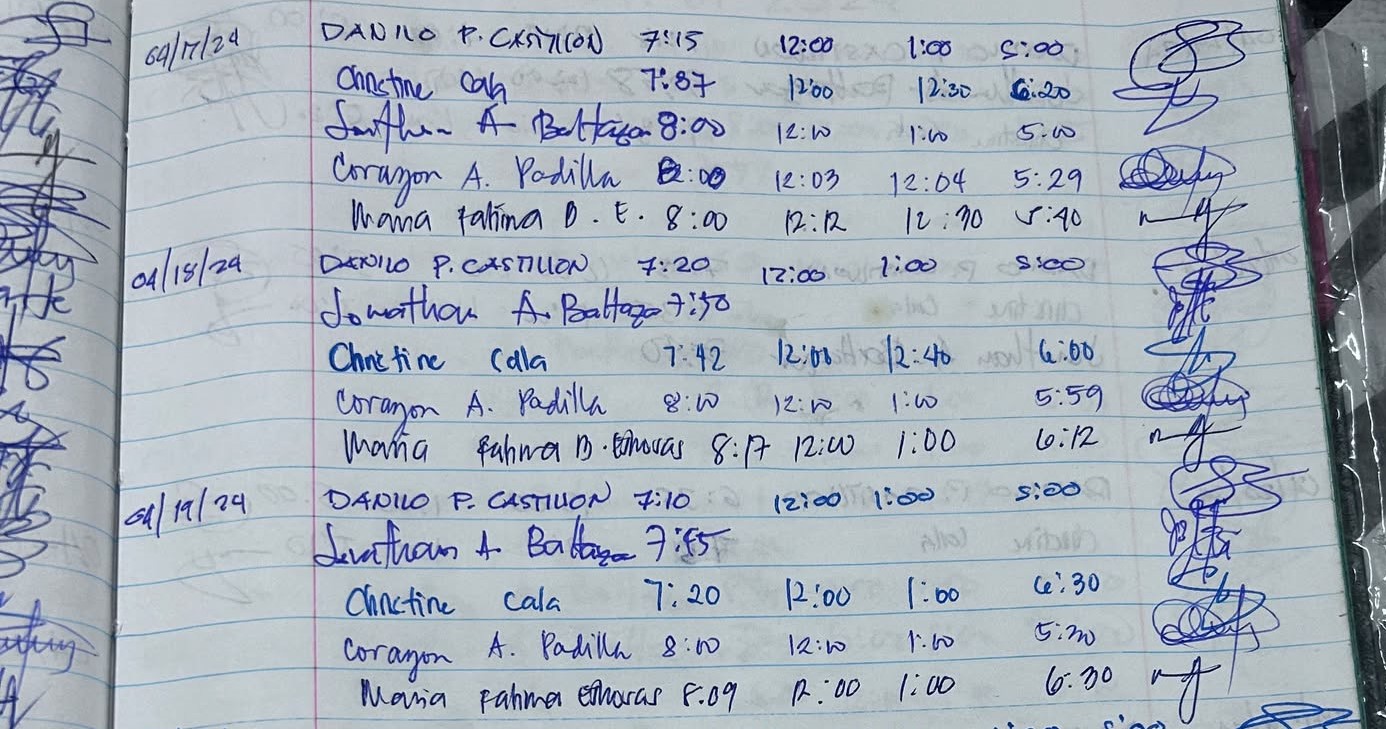 04/17/24 DANILO P. CASTILLON 7:15 12:00 1:00 5:00
Christine Cala 7:37 12:00 12:30 6:20
Jonathan A. Baltazar 8:00 12:00 1:00 5:00
Corazon A. Padilla 8:00 12:03 12:04 5:29
Maria Fatima D. E. 8:00 12:12 12:30 5:40
04/18/24 DANILO P. CASTILLON 7:20 12:00 1:00 5:00
Jonathan A. Baltazar 7:50
Christine Cala 7:42 12:00 12:40 6:00
Corazon A. Padilla 8:00 12:00 1:00 5:59
Maria Fatima D. 8:17 12:00 1:00 6:12
04/19/24 DANILO P. CASTILLON 7:10 12:00 1:00 5:00
Jonathan A. Baltazar 7:55
Christine Cala 7:20 12:00 1:00 6:30
Corazon A. Padilla 8:00 12:00 1:00 5:30
Maria Fatima 8:09 12:00 1:00 6:30